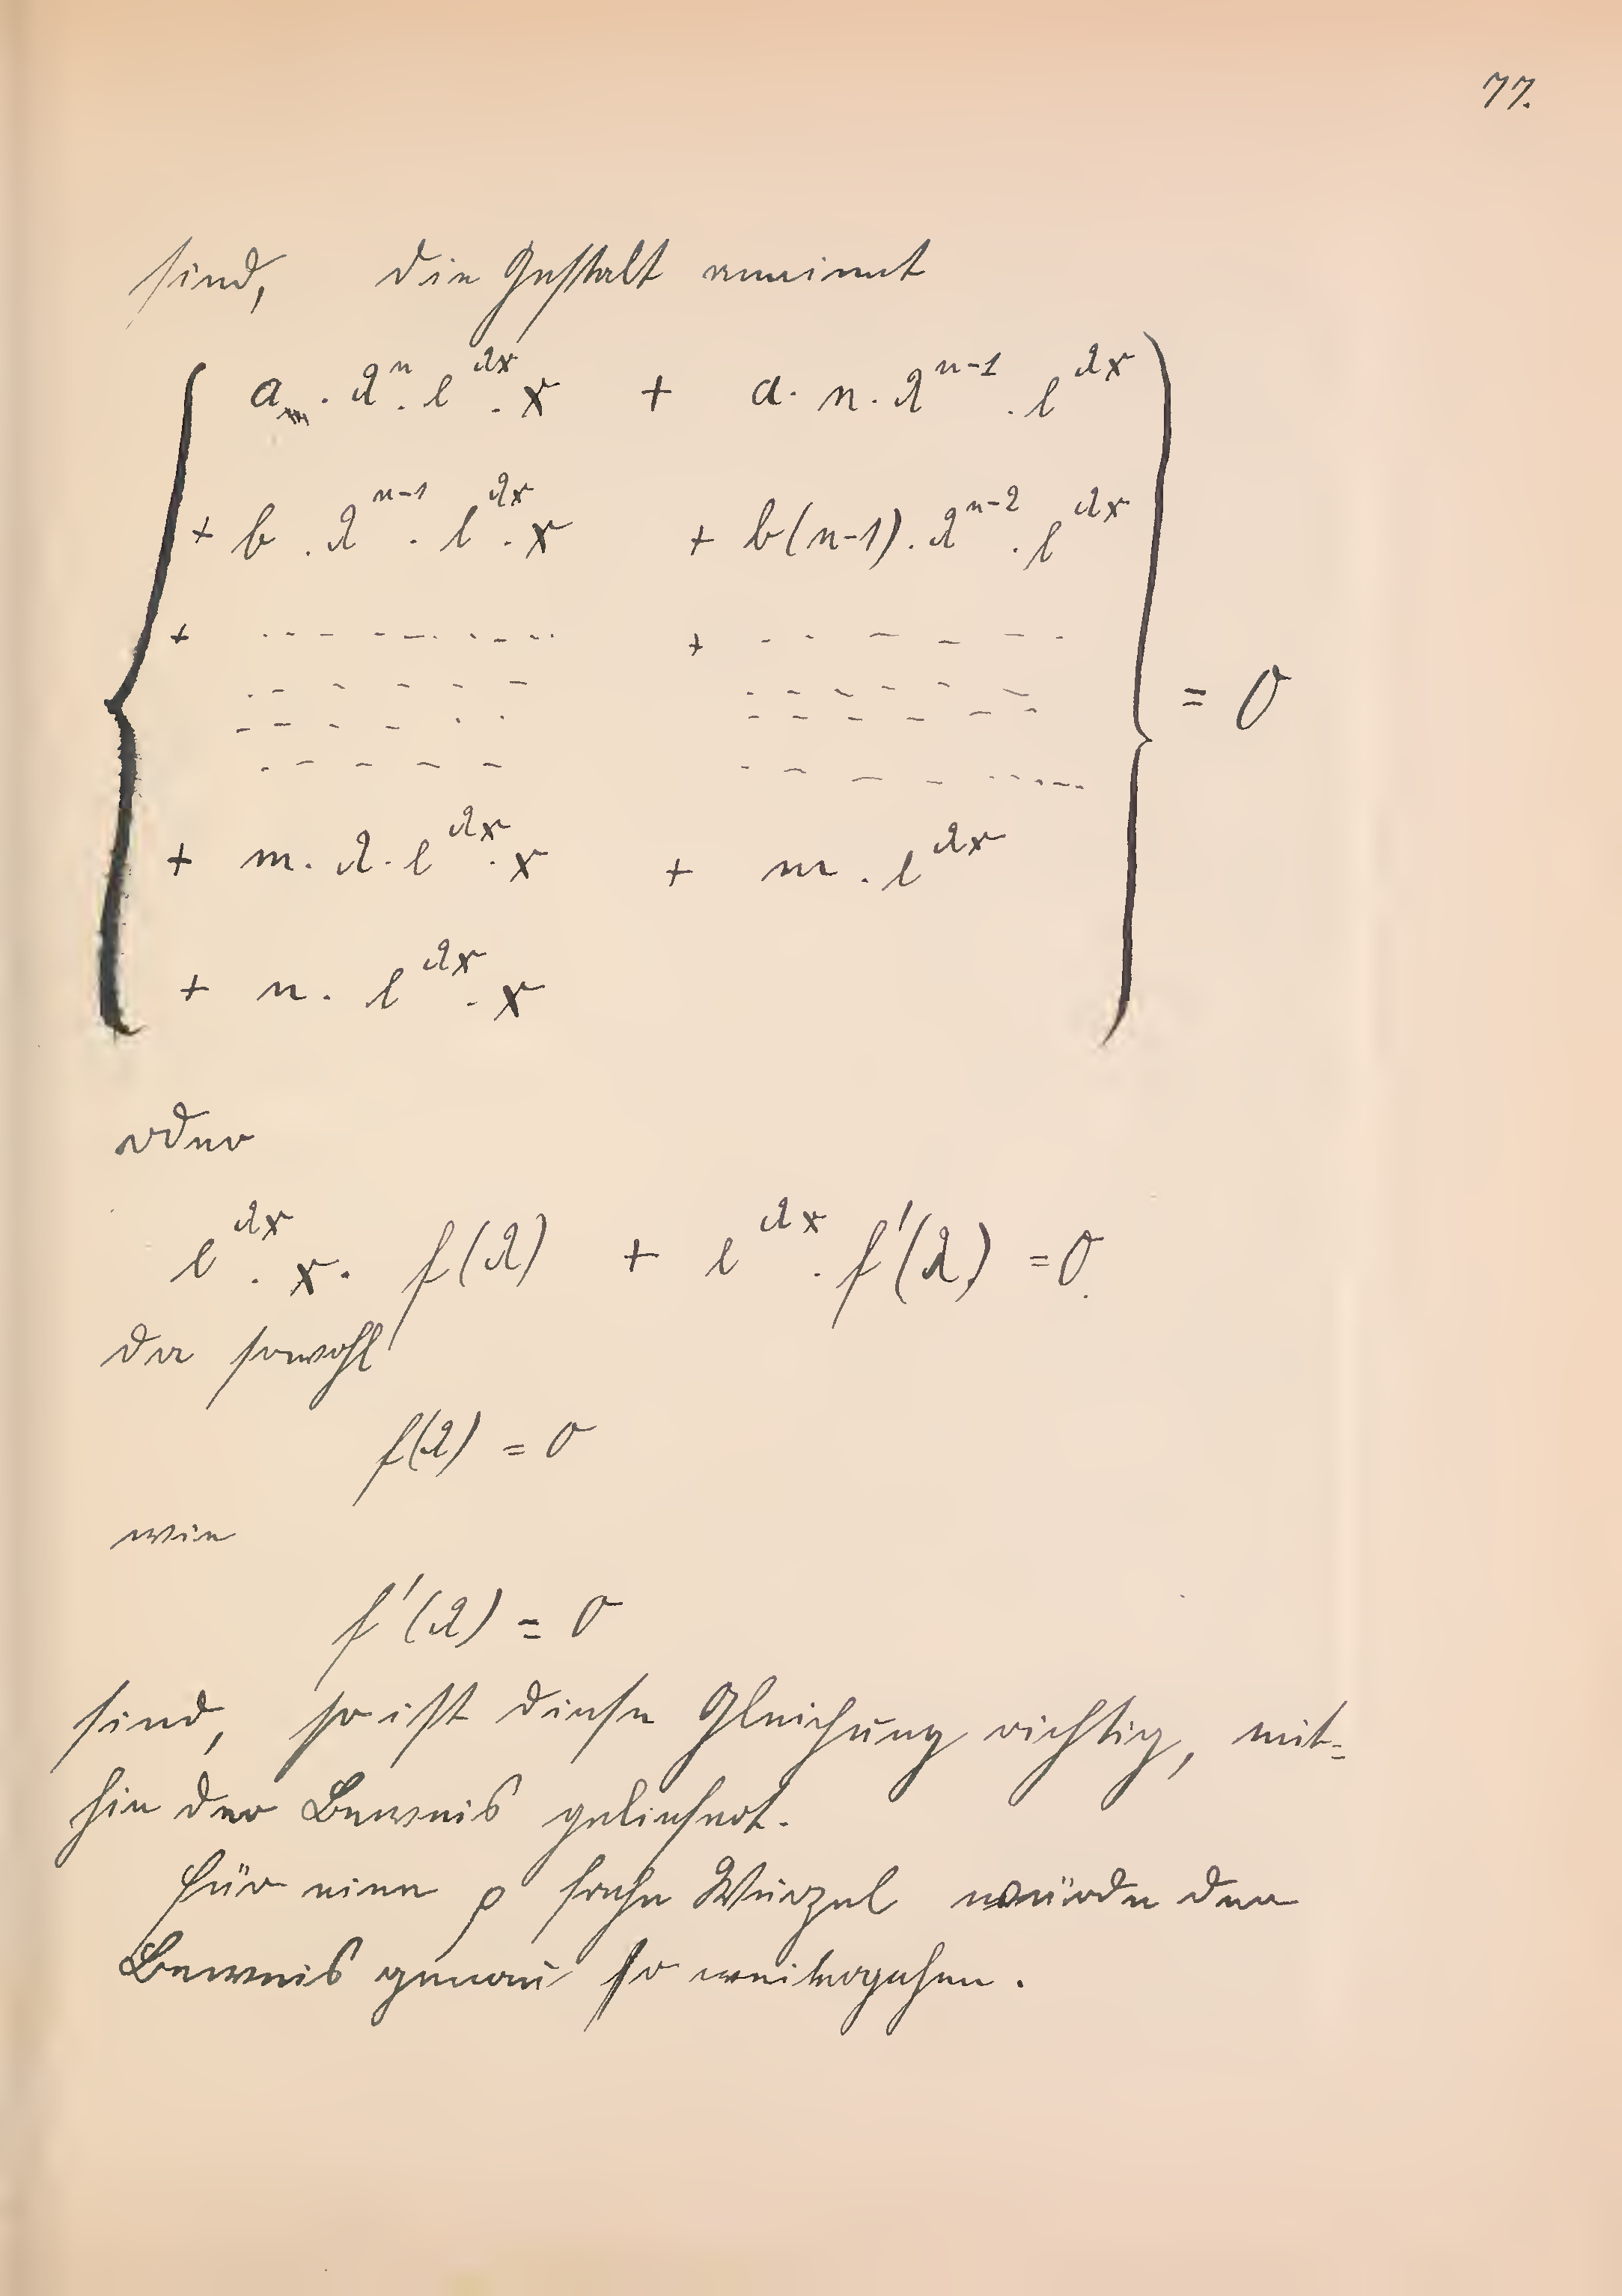 77.
sind, die Gestalt annimmt
a · λⁿ · e^{λx} · x + a · n · λ^{n-1} · e^{λx}
+ b · λ^{n-1} · e^{λx} · x + b(n-1) · λ^{n-2} · e^{λx}
+ - - - - - - - - + - - - - - -
- - - - - - - - - - - -
- - - - - - - - - - - - = 0
- - - - - - - - - - - -
+ m · λ · e^{λx} · x + m · e^{λx}
+ n · e^{λx} · x
oder
e^{λx} · x · f(λ) + e^{λx} · f'(λ) = 0.
da sowohl
f(λ) = 0
wie
f'(λ) = 0
sind, so ist diese Gleichung richtig, mit=
hin der Beweis geliefert.
Für eine ρ fache Wurzel würde der
Beweis genau so weitergehen.